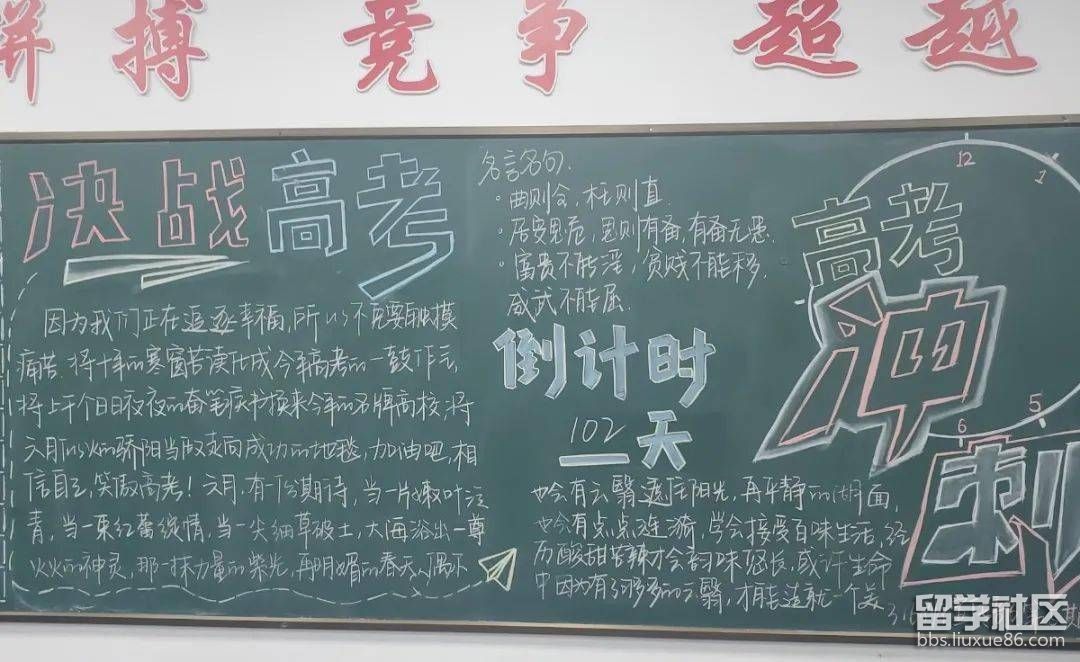 拼搏 竞争 超越
决战高考
因为我们正在追逐幸福,所以不需要触摸
痛苦 将十年的寒窗苦读化成今年高考的一鼓作气
将上千个日日夜夜的奋笔疾书换来今年的名牌高校;将
六月似火的骄阳当做走向成功的地毯,加油吧,相
信自己,笑傲高考!六月,有一份期待,当一片嫩叶泛
青,当一束红蕾绽情,当一尖细草破土,大海浴出一尊
火火的神灵,那一抹力量的紫光,再明媚的春天,偶尔
名言名句:
·曲则全,枉则直
·居安思危,思则有备,有备无患.
·富贵不能淫,贫贱不能移,
威武不能屈.
倒计时
102天
也会有云翳遮住阳光,再平静的湖面,
也会有点点涟漪,学会接受百味生活,经
历酸甜苦辣才会韵味悠长,或许生命
中因为有了多多的云翳,才能造就一个美
高考
冲
刺
12
1
5
6
316
期
留学社区
bbs.liuxue86.com